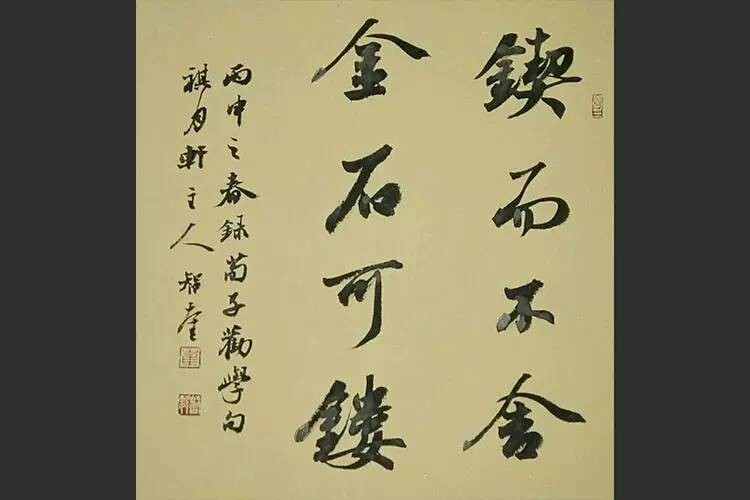 鍥而不舍
金石可鏤
丙申之春録荀子勸學句
祺月軒主人智奎